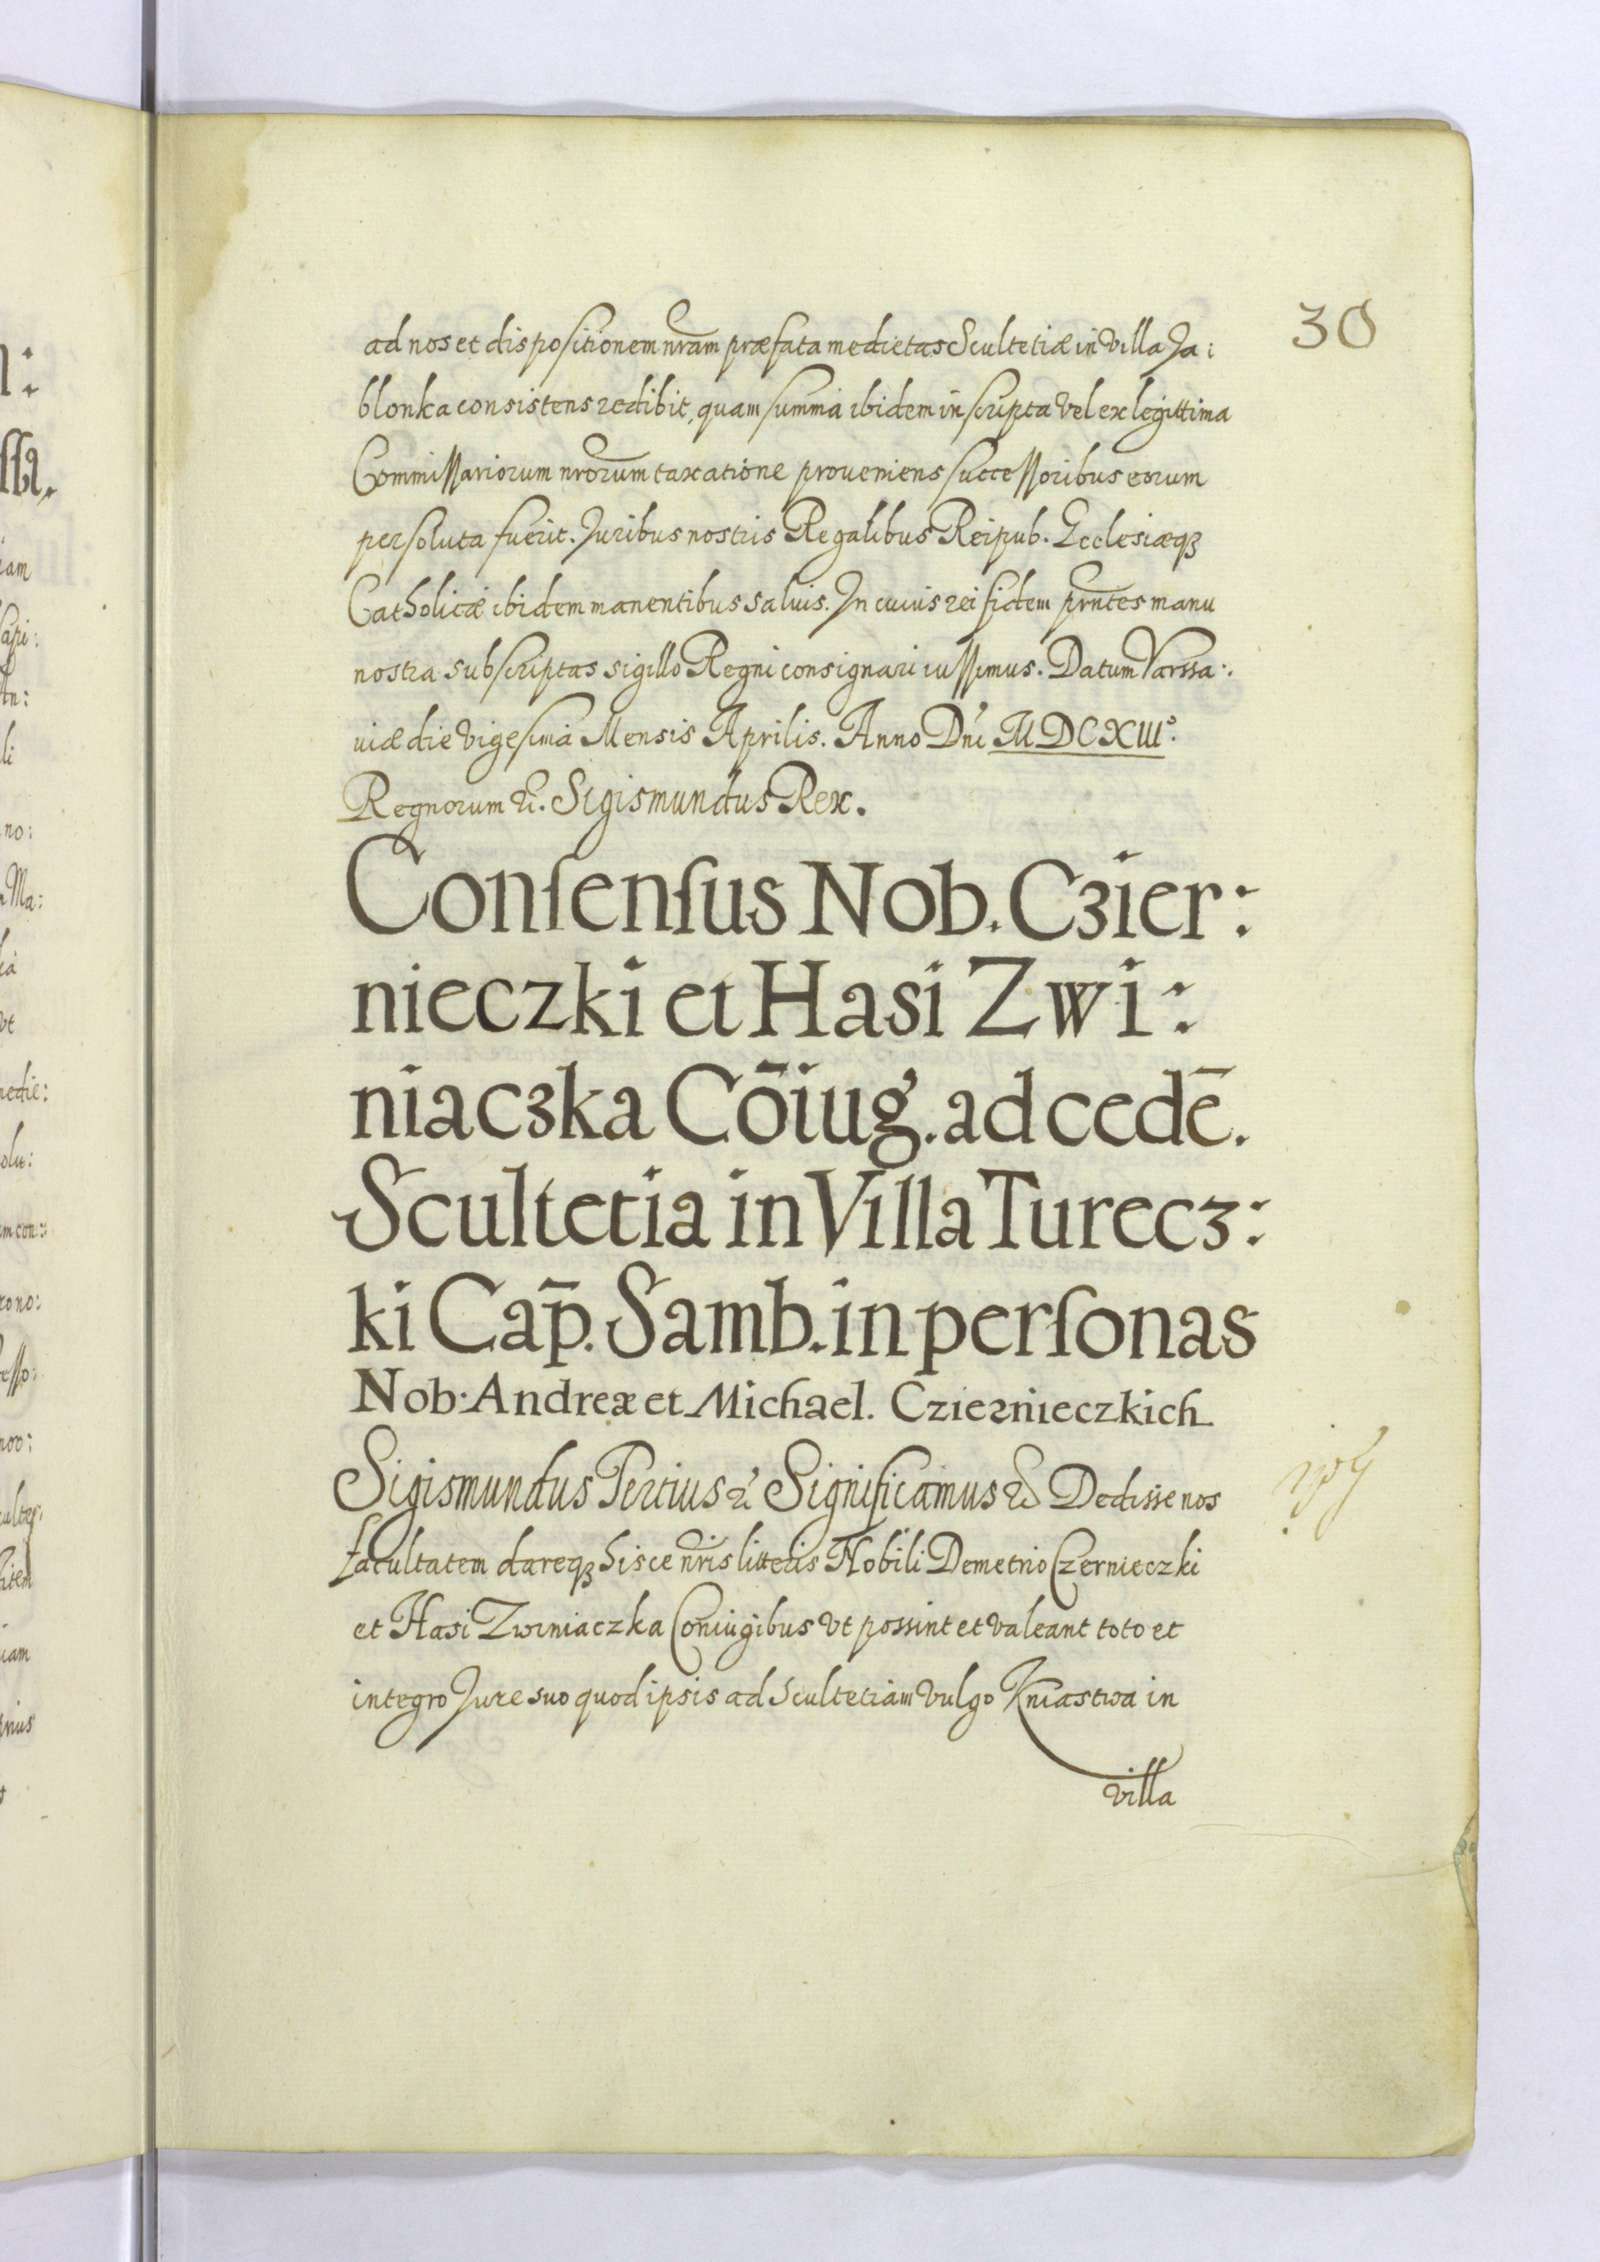 30
ad nos et dispositionem nram præfata medietas Scultetiæ in Villa Ja:
blonka consistens redibit, quam summa ibidem inscripta vel ex legittima
Commissariorum nrorum taxatione proveniens successoribus eorum
persoluta fuerit. Juribus nostris Regalibus Reipub. Ecclesiæqꝫ
Catholicæ ibidem manentibus salvis. In cuius rei fidem prntes manu
nostra subscriptas sigillo Regni consignari iussimus. Datum Varssa:
uiæ die vigesima Mensis Aprilis. Anno Dni MDCXIIIº.
Regnorum &. Sigismundus Rex.
Conſenſus Nob. Cꝫier:
nieczki et Hasi Zwi:
niacꝫka Cōiug. ad cedē.
Scultetia in Villa Turecꝫ:
ki Cap̄. Samb. in perſonas
Nob. Andreæ et Michael. Cziernieczkich
Sigismundus Tertius & Significamus & Dedisse nos
facultatem dareqꝫ hisce nris litteris Nobili Demetrio Czernieczki
et Hasi Zwiniaczka Coniugibus vt possint et valeant toto et
integro Jure suo quod ipsis ad Scultetiam vulgo Kniastwa in
villa